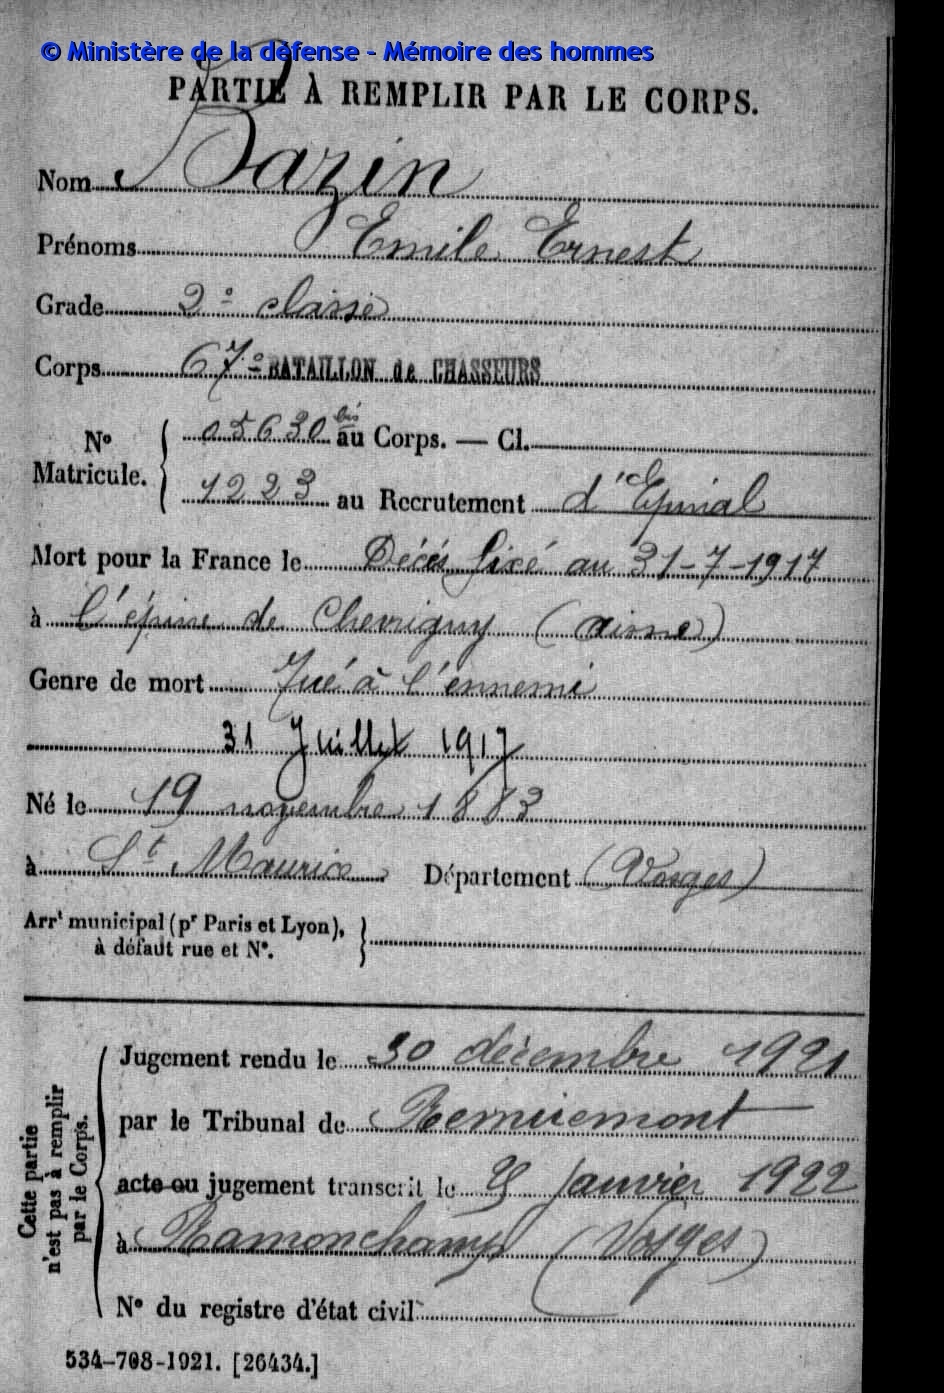 © Ministère de la défense - Mémoire des hommes
PARTIE À REMPLIR PAR LE CORPS.
Nom Bazin
Prénoms Emile Ernest
Grade 2e classe
Corps 67e BATAILLON de CHASSEURS
No Matricule. { 05630 bis au Corps. — Cl.
1223 au Recrutement d'Epinal
Mort pour la France le Décès fixé au 31-7-1917
à l'épine de Chevrigny (aisne)
Genre de mort Tué à l'ennemi
31 Juillet 1917
Né le 19 novembre 1883
à St Maurice Département (Vosges)
Arrt municipal (pr Paris et Lyon), }
à défaut rue et No.
Cette partie
n'est pas à remplir
par le Corps.
Jugement rendu le 30 décembre 1921
par le Tribunal de Remiremont
acte ou jugement transcrit le janvier 1922
à Ramonchamp (Vosges)
No du registre d'état civil
534-708-1921. [26434.]